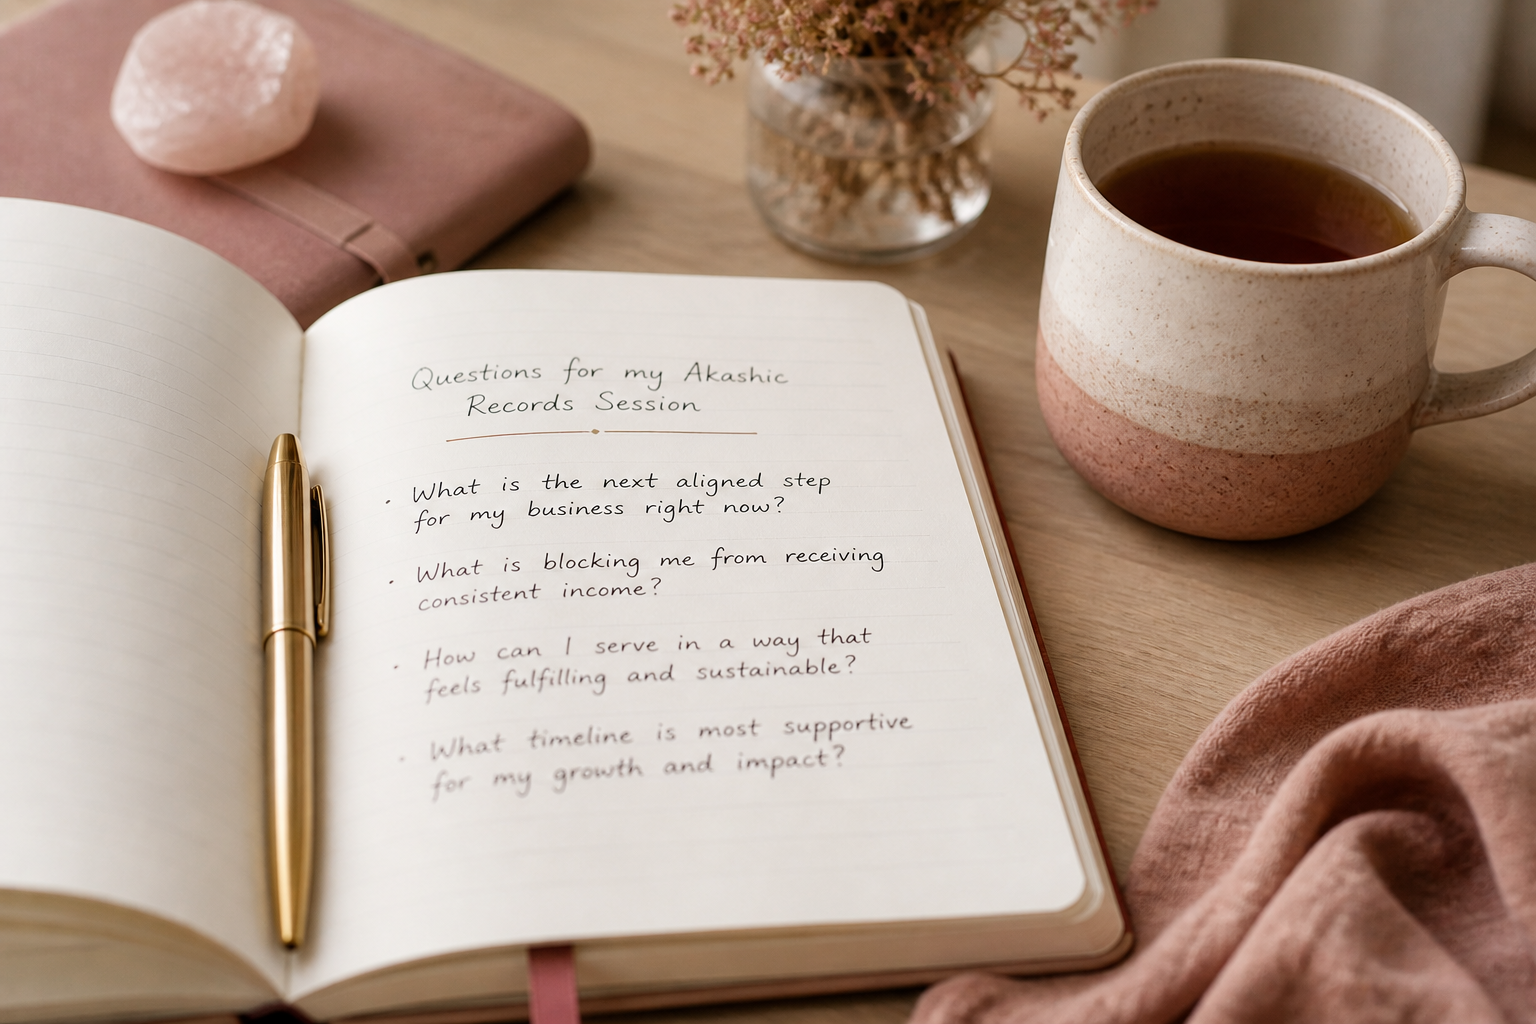 Questions for my Akashic
Records Session
· What is the next aligned step
for my business right now?
· What is blocking me from receiving
consistent income?
· How can I serve in a way that
feels fulfilling and sustainable?
· What timeline is most supportive
for my growth and impact?